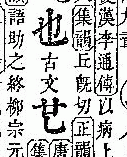 漢李通傳以病上
集韻丘旣切正韻
也古文
唐
集
語助之終柳宗元